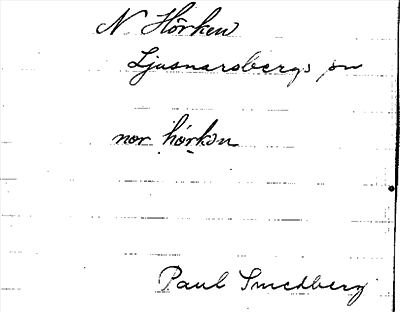 N Hörken
Ljusnarsbergs sn
nor hö́rkən
Paul Smedberg